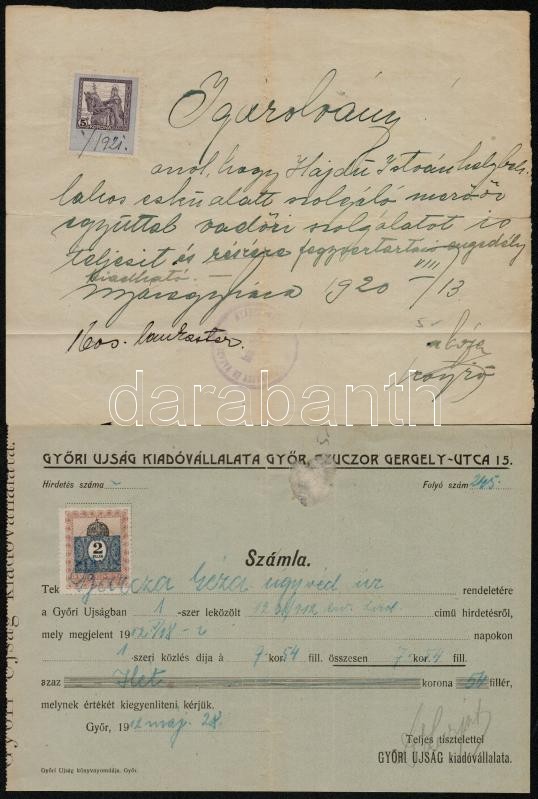 5
1921.
Igazolvány!
arról, hogy Hajdú István helybeli
lakos eskü alatt szolgáló mezőőr
egyúttal vadőri szolgálatot is
teljesit és részére fegyvertartási engedély
kiadható. —
1920 VIII/13
darabanth
GYŐRI UJSÁG KIADÓVÁLLALATA GYŐR, CZUCZOR GERGELY-UTCA 15.
Hirdetés száma
Folyó szám 245.
2
Számla.
Tek Géza ügyvéd úr rendeletére
a Győri Ujságban 1 -szer leközölt cimü hirdetésről,
mely megjelent 19 napokon
1 -szeri közlés dija à 7 kor. 54 fill. összesen 7 kor. 54 fill.
azaz Hét korona 54 fillér,
melynek értékét kiegyenliteni kérjük.
Győr, 1912 maj. 28.
Teljes tisztelettel
GYŐRI UJSÁG kiadóvállalata.
Győri Ujság könyvnyomdája, Győr.
Győri Ujság Kiadóvállalata.